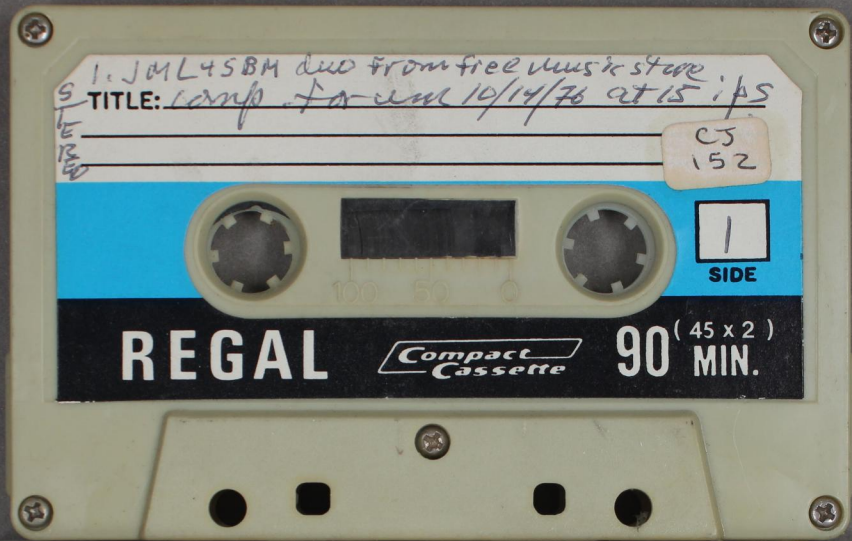 1. JML + SBM duo from free music store
TITLE: comp forum 10/14/76 at 15 ips
STEREO
CJ
152
1
SIDE
100 50 0
REGAL
Compact
Cassette
90 (45 x 2)
MIN.